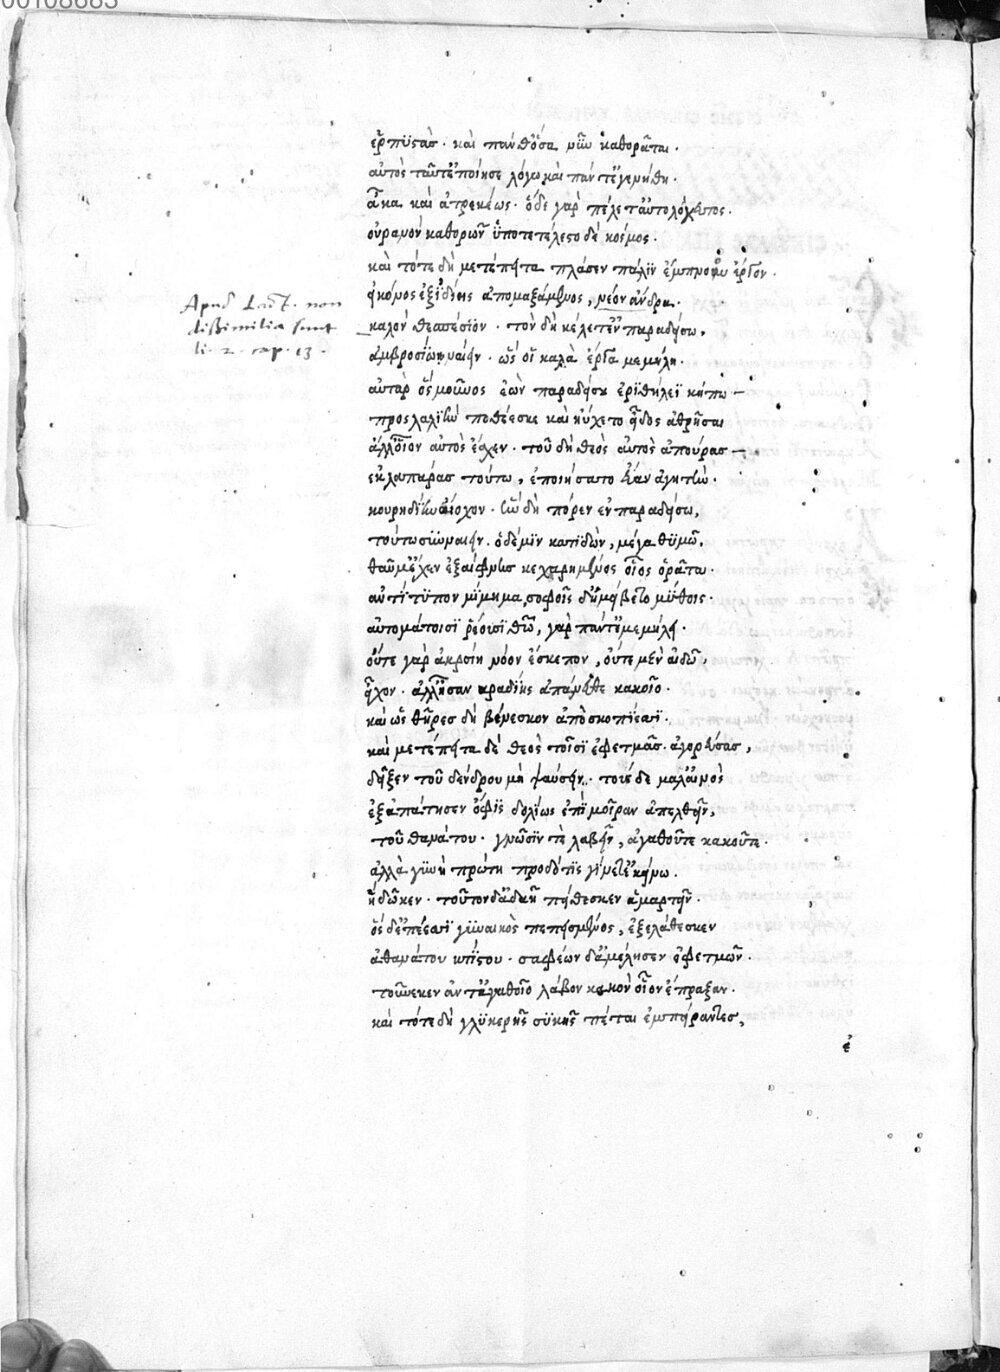 00108683
ἑρπυστὰς · καὶ πάνθ ὅσα νῦν καθορᾶται ·
αὐτὸς ταῦτ ἐποίησε λόγω καὶ πάντ ἐγενήθη ·
ὦκα καὶ ἀτρεκέως · ὅδε γὰρ πέλετ αὐτολόχευτος ·
οὐρανόν καθορῶν ὑπο τετέλεστο δὲ κόσμος ·
καὶ τότε δὴ μετέπειτα πλάσεν πάλιν ἔμπνοον ἔργον ·
εἰκόνος ἐξ ἰδίης ἀπομαξάμενος, νέον ἄνδρα ·
Apud Lact. non
dissimilia sunt
li. 2. cap. 13.
καλὸν θεσπέσιον · τὸν δὴ κέλετ ἐν παραδείσω,
ἀμβροσίω ναίειν · ὥς οἱ καλὰ ἔργα μεμήλη ·
αὐτὰρ ὅς μοῦνος ἐὼν παραδείσου ἐριθηλέϊ κήπω
προσλαλιὴν ποθέεσκε καὶ ηὔχετο εἶδος ἀθρῆσαι
ἀλλοῖον αὐτὸς ἔσχεν · τοῦ δὴ θεὸς αὐτὸς ἀπούρας
ἐκ λαπάρας τούτω, ἐποιήσατο Εὔαν ἀγητὴν ·
κουριδίην ἄλοχον · ἣν δὴ πόρεν ἐν παραδείσω,
τούτω συνναίειν · ὁδέ μιν κατιδὼν, μέγα θυμῶ,
θαῦμ ἔχεν ἐξαίφνης κεχαρημένος οἷος ὁρᾶτο ·
ἀντίτυπον μίμημα, σοφοῖς δ ἠμείβετο μύθοις ·
αὐτομάτοισι ῥέουσι θεῶ, γὰρ πάντ ἐμεμήλει ·
οὔτε γὰρ ἀκρσίη νόον ἔσκεπον, οὔτε μὲν αἰδῶ,
εἶχον · ἀλλ ἦσαν κραδίης ἀπάνευθε κακοῖο ·
καὶ ὡς θῆρες δὴ βαίνεσκον ἀποσκοπέεσσι ·
καὶ μετέπειτα δὲ θεὸς τοῖσι ἐφετμὰς · ἀγορεύσας,
δεῖξεν τοῦ δένδρου μὴ ψαύσειν · τοὺς δὲ μάλ αἰνὸς
ἐξαπάτησεν ὄφις δολίως ἐπὶ μοῖραν ἀπελθεῖν,
τοῦ θανάτου · γνῶσίν τε λαβεῖν, ἀγαθοῦτε κακοῦτε ·
ἀλλὰ γυνὴ πρώτη προδότις γίνετ ἐκείνω ·
ἣ δῶκεν · τοῦτον δ ἀδαῆ πείθεσκεν ἁμαρτεῖν ·
ὅς δ ἐπέεσσι γυναικὸς πεπεισμένος, ἐξελάθεσκεν
ἀθανάτου κτίστου · σαφέων δ ἀμέλησεν ἐφετμῶν ·
τοὔνεκεν ἀντ ἀγαθοῖο λάβον κακὸν οἷον ἔπραξαν ·
καὶ τότε δὴ γλυκερῆς συκῆς πέταλ ἐμπείραντες,
ἐ